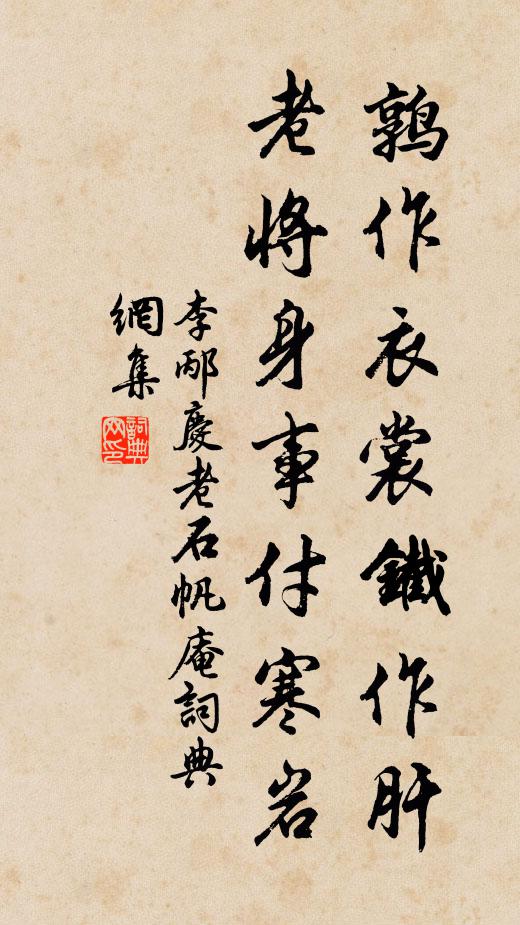 鶉作衣裳鐵作肝
老將身事付寒岩
李邴慶老石帆庵詞典
網集
詞典
网印